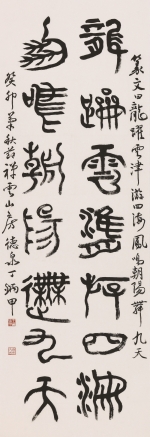 篆文曰龍躍雲津游四海鳳鳴朝陽舞九天
龍躍雲津游四海
鳳鳴朝陽舞九天
癸卯孟秋於禪雲山房德泉丁炳甲